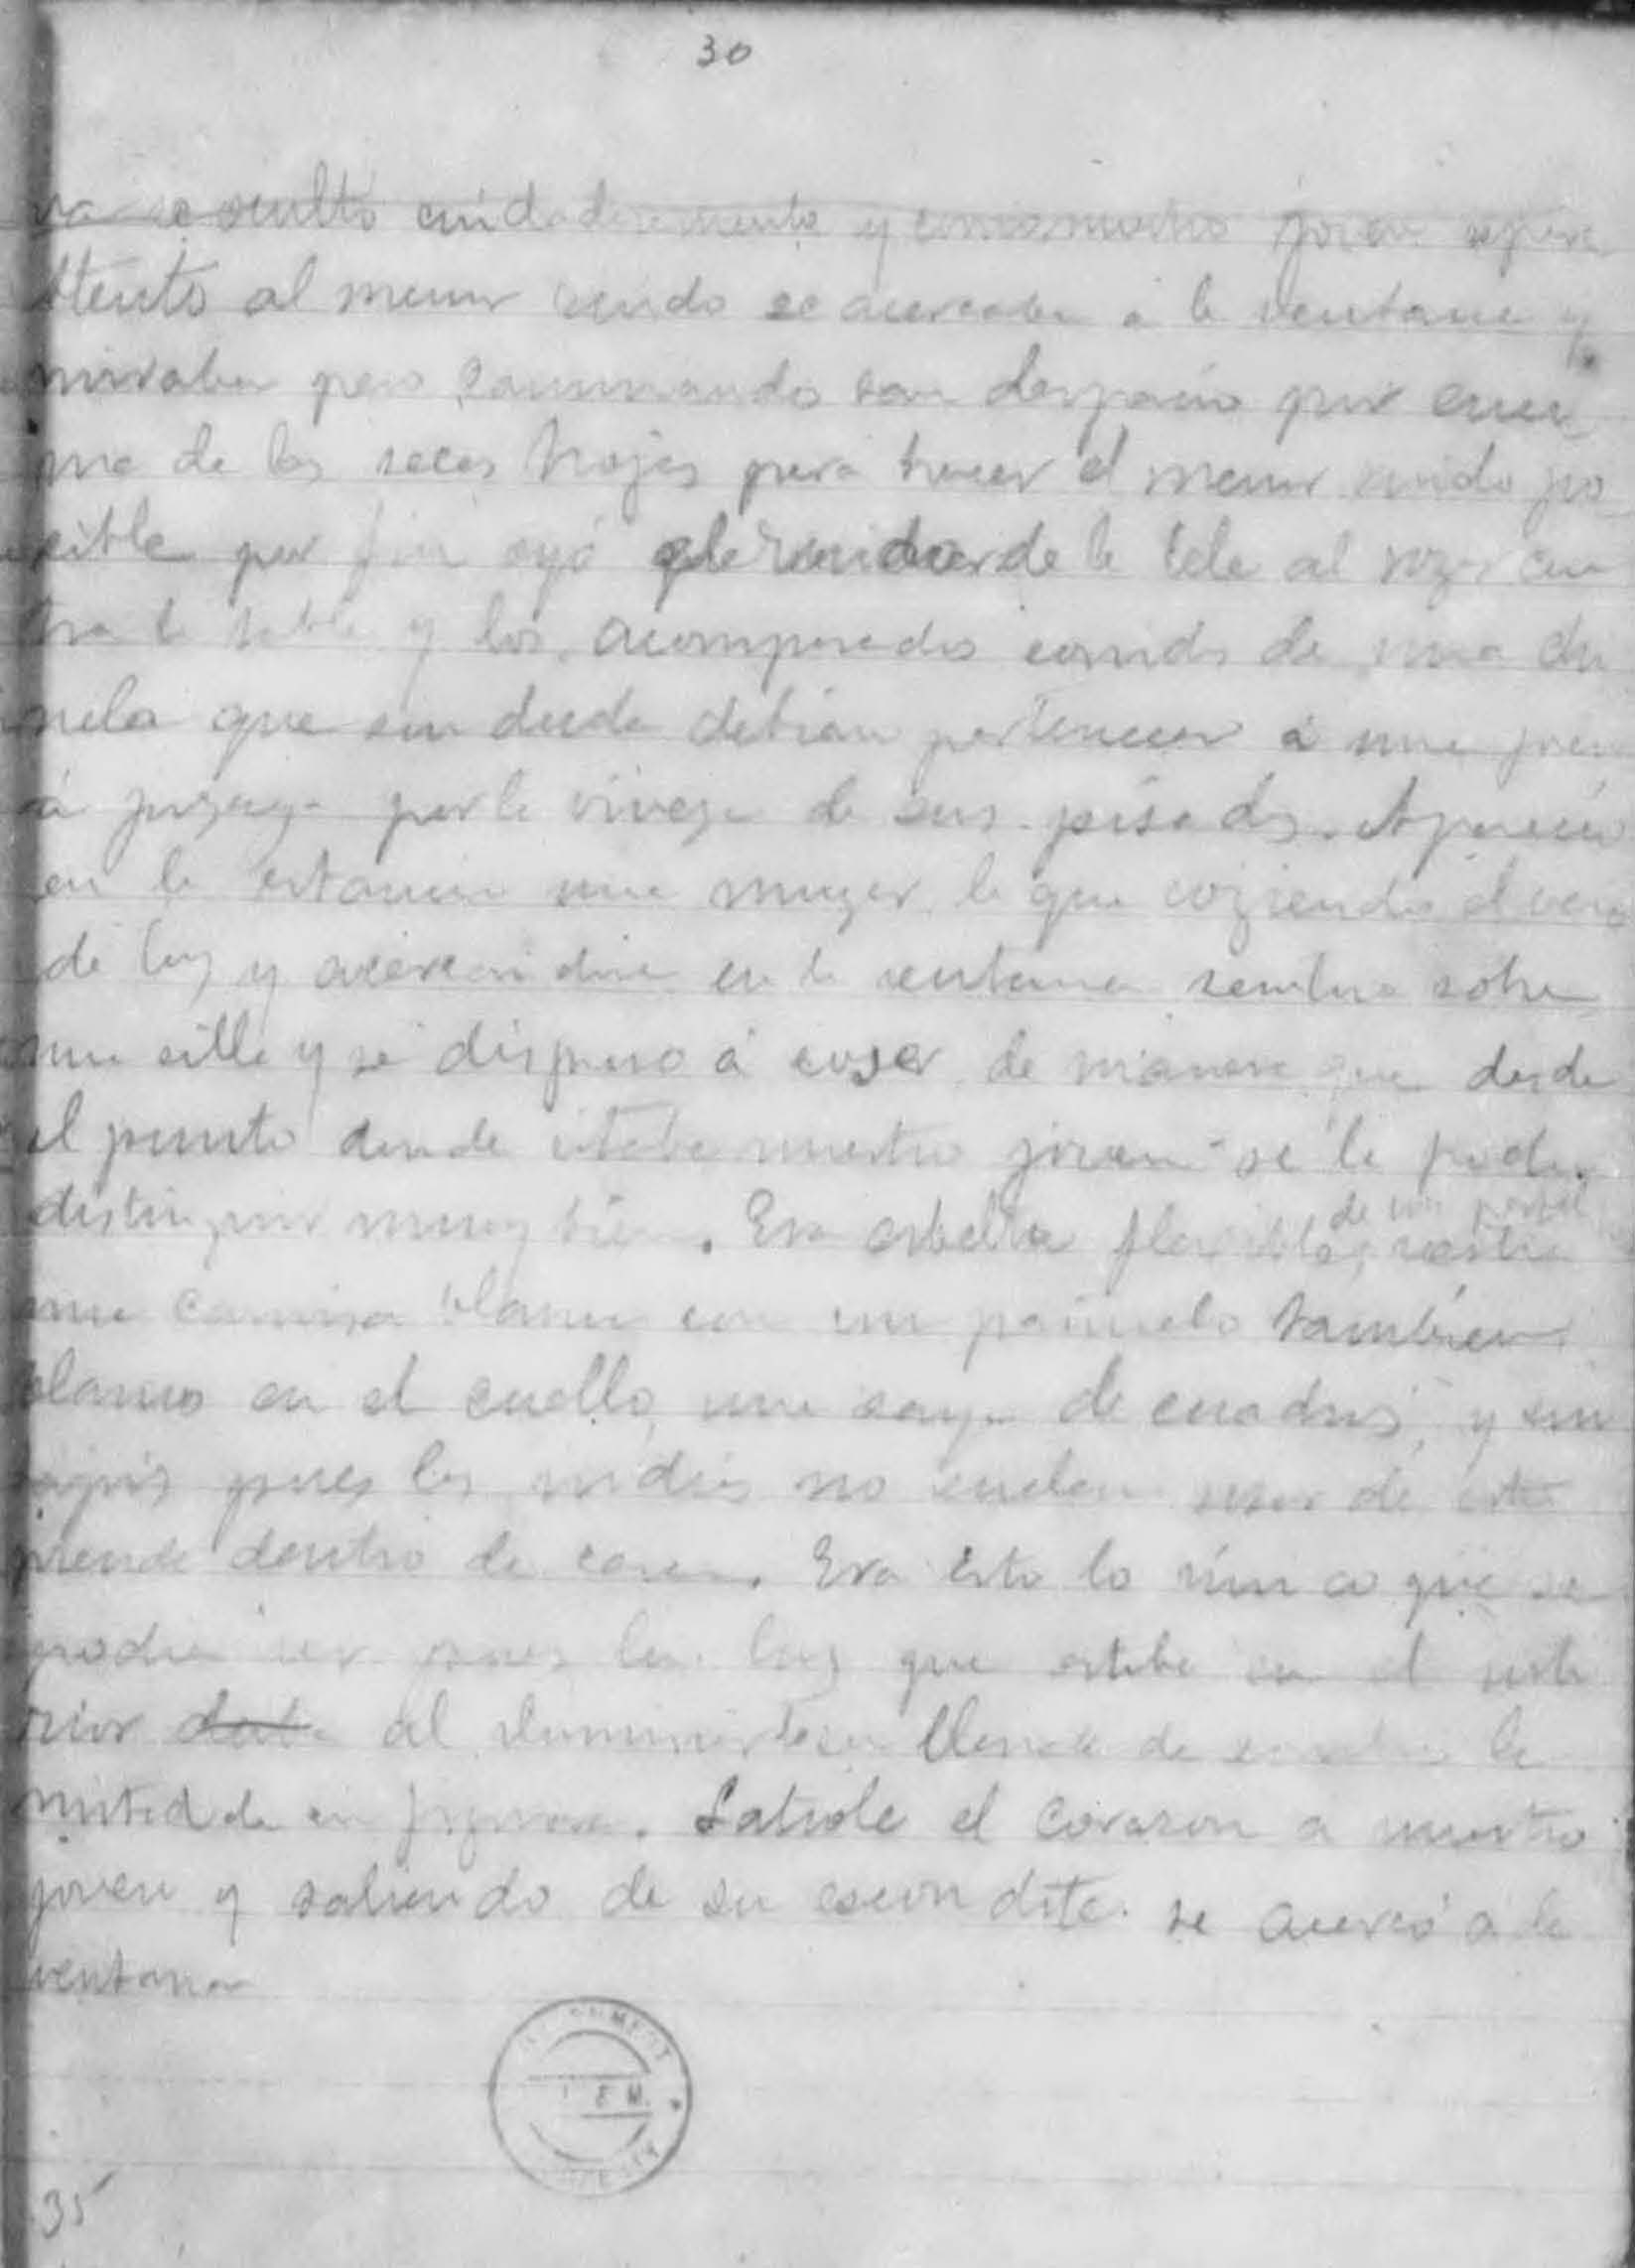 30
va se oculto cuidadosamente y como nuestro joven
atento al menor ruido se acercaba á la ventana y
miraba pero caminando tan despacio por enci
ma de las secas hojas para hacer el menor ruido po
sible por fin oyó el ruido de la tela al rozar con
tra la y los acompasados de una chi
nela que sin duda debian pertenecer á una joven
á juzgar por la viveza de sus pisadas. Aparecio
en la estancia una muger, la que cogiendo el vaso
de luz y acercandose en la ventana sentose sobre
una silla y se dispuso á coser de manera que desde
el punto donde estaba nuestro joven se la podia
distinguir muy bien. Era esbelta flexible,
de un
una camisa blanca con un pañuelo tambien
blanco en el cuello, una saya de cuadros, y sin
tapis pues las indias no suelen usar de esta
prenda dentro de casa. Era esto lo unico que se
podia ver pues la luz que estaba en el inte
rior al llena de sombra la
mitad de su figura. Latiole el corazon a nuestro
joven y saliendo de su escondite se acercó a la
ventana
35